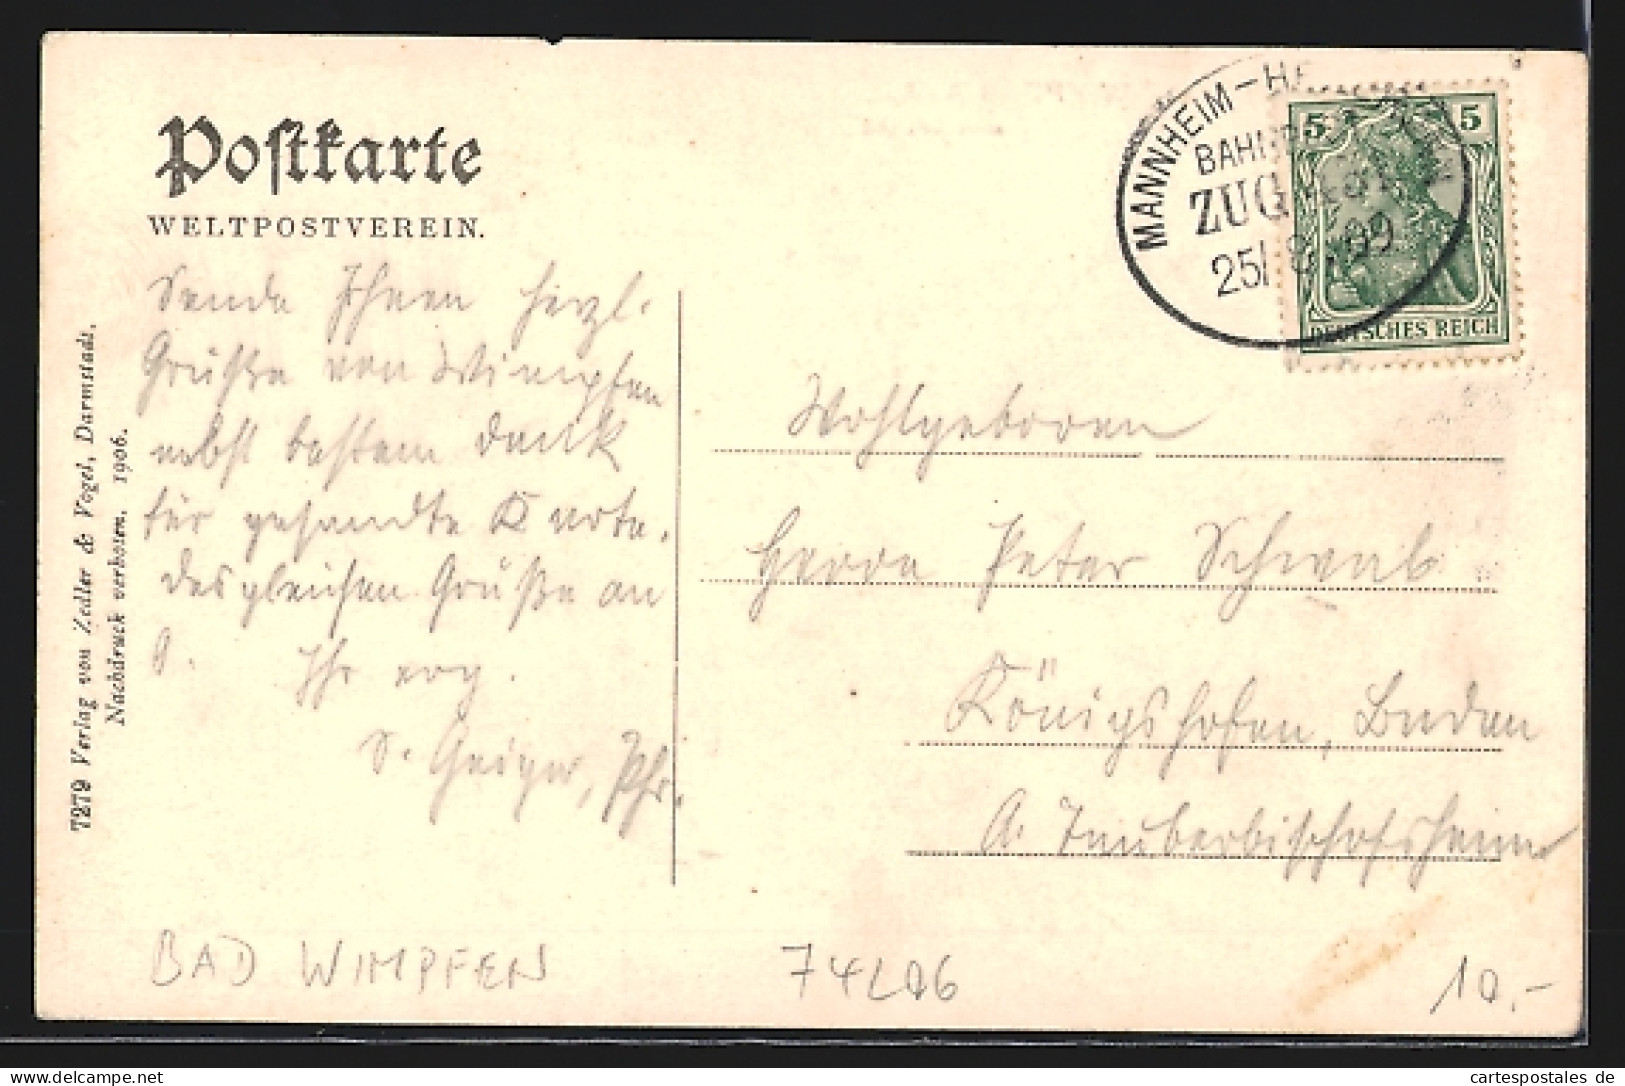 Postkarte
WELTPOSTVEREIN.
Sende Ihnen herzl.
Grüße von Wimpfen
nebst bestem Dank
für gesandte Karte.
Desgleichen Grüße an
Ihr erg.
S. Geiger, Pfr.
7279 Verlag von Zedler & Vogel, Darmstadt.
Nachdruck verboten. 1906.
MANNHEIM—HE
BAHNP
ZUG
25/ 8 09
5 5
DEUTSCHES REICH
Wohlgeboren
Herrn Peter Schwab
Königshofen, Baden
A. Tauberbischofsheim
BAD WIMPFEN
74206
10.-
delcampe.net
cartespostales de